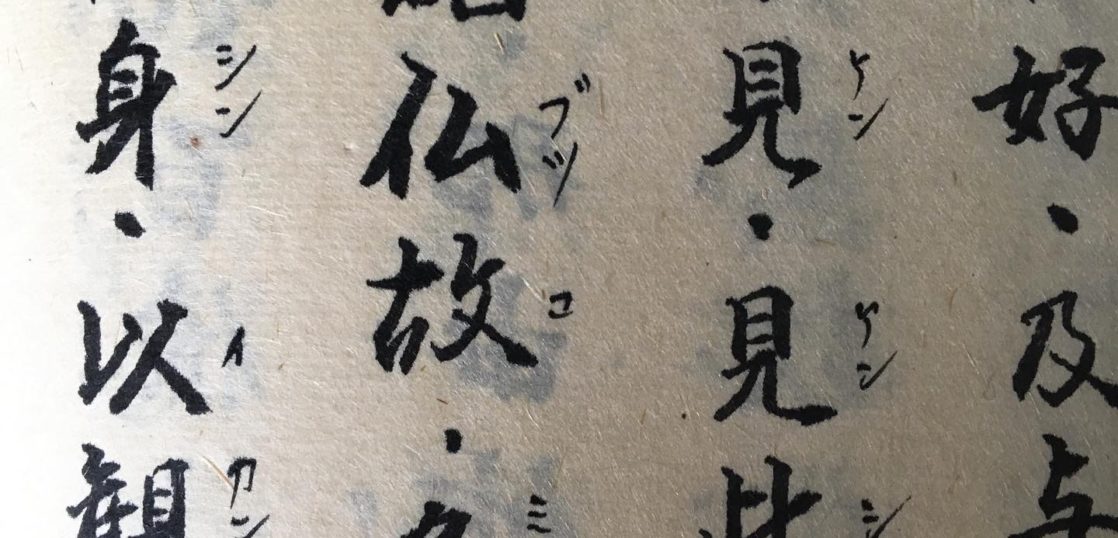 好・及与
見・見此
ケン ケン シ
仏故・名
ブツ コ ミ
身・以観
シン イ カン